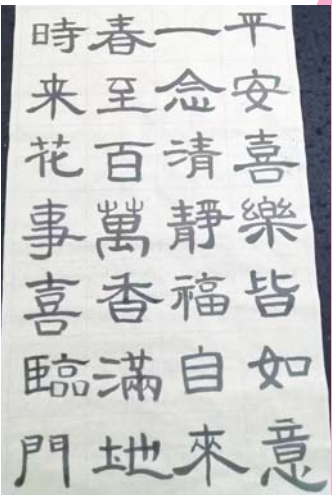 平安喜樂皆如意
一念清靜福自來
春至百萬香滿地
時来花事喜臨門